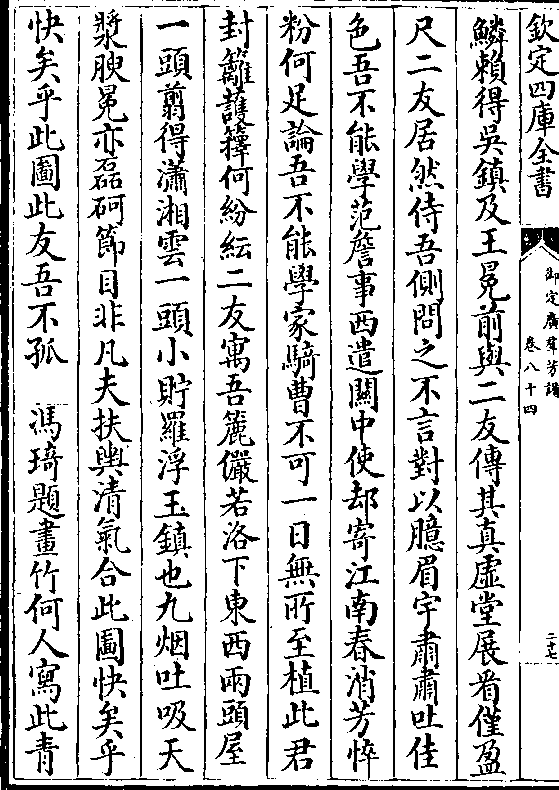 欽定四庫全書
御定廣羣芳譜
卷八十四
鱗賴得吳鎮及王冕前與二友傳其真虛堂展看僅盈
尺二友居然侍吾側問之不言對以臆眉宇肅肅吐佳
色吾不能學范詹事西遣關中使却寄江南春消芳悴
粉何足論吾不能學家騎曹不可一日無所至植此君
封籬護籜何紛紜二友寓吾麓儼若洛下東西兩頭屋
一頭翦得瀟湘雲一頭小貯羅浮玉鎮也九烟吐吸天
漿腴冕亦磊砢節目非凡夫扶輿清氣合此圖快矣乎
快矣乎此圖此友吾不孤　馮琦題畫竹何人寫此青